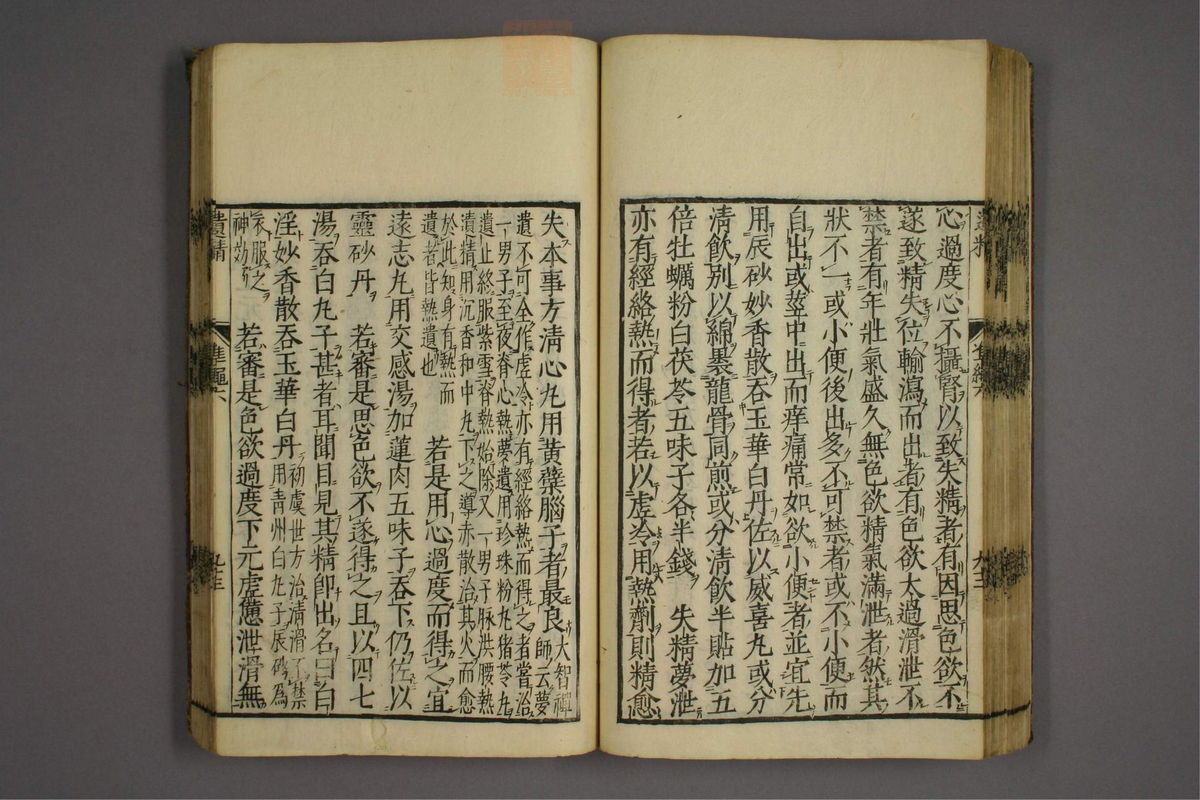 心過度心不攝腎以致失精者有因思色欲不
遂致精失位輸瀉而出者有色欲太過滑泄不
禁者有年壯氣盛久無色欲精氣滿泄者然其
狀不一或小便後出多不可禁者或不小便而
自出或莖中出而痒痛常如欲小便者並宜先
用辰砂妙香散吞玉華白丹佐以威喜丸或分
清飲別以綿裹龍骨同煎或分清飲半貼加五
倍牡蠣粉白茯苓五味子各半錢 失精夢泄
亦有經絡熱而得者若以虛冷用熱劑則精愈
失本事方清心丸用黃蘗腦子者最良
大智禪
師云夢
遺不可全作虛冷亦有經絡熱而得之者嘗治
一男子至夜脊心熱夢遺用珍珠粉丸猪苓丸
遺止終服紫雪脊熱始除又一男子脉洪腰熱
遺精用沉香和中丸下之導赤散治其火而愈
於此知身有熱而
遺者皆熱遺也
若是用心過度而得之宜
遠志丸用交感湯加蓮肉五味子吞下仍佐以
靈砂丹 若審是思色欲不遂得之且以四七
湯吞白丸子甚者耳聞目見其精即出名曰白
淫妙香散吞玉華白丹
初虞世方治清滑不禁
用青州白丸子辰砂為
衣服之
神効
若審是色欲過度下元虛憊泄滑無
遺精
準繩六